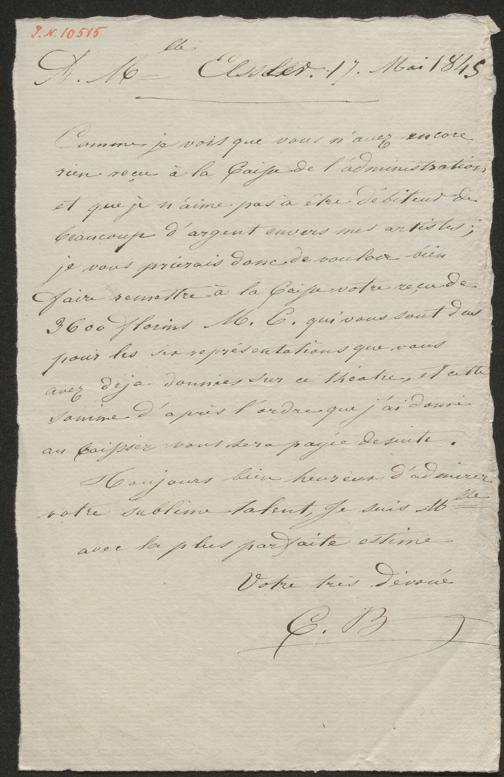 J. N. 10515
A. Mlle Elssler. 17. Mai 1845
Comme je vois que vous n'avez encore
rien reçu à la Caisse de l'administration,
et que je n'aime pas à être débiteur de
beaucoup d'argent envers mes artistes;
je vous prierais donc de vouloir bien
faire remettre à la Caisse votre reçu de
3600 florins M. C. qui vous sont dus
pour les six représentations que vous
avez déja données sur ce théatre, et cette
somme d'après l'ordre que j'ai donné
au Caissier vous sera payée desuite.
Toujours bien heureux d'admirer
votre sublime talent, Je suis Mlle
avec la plus parfaite estime
Votre très dévoué
C. B